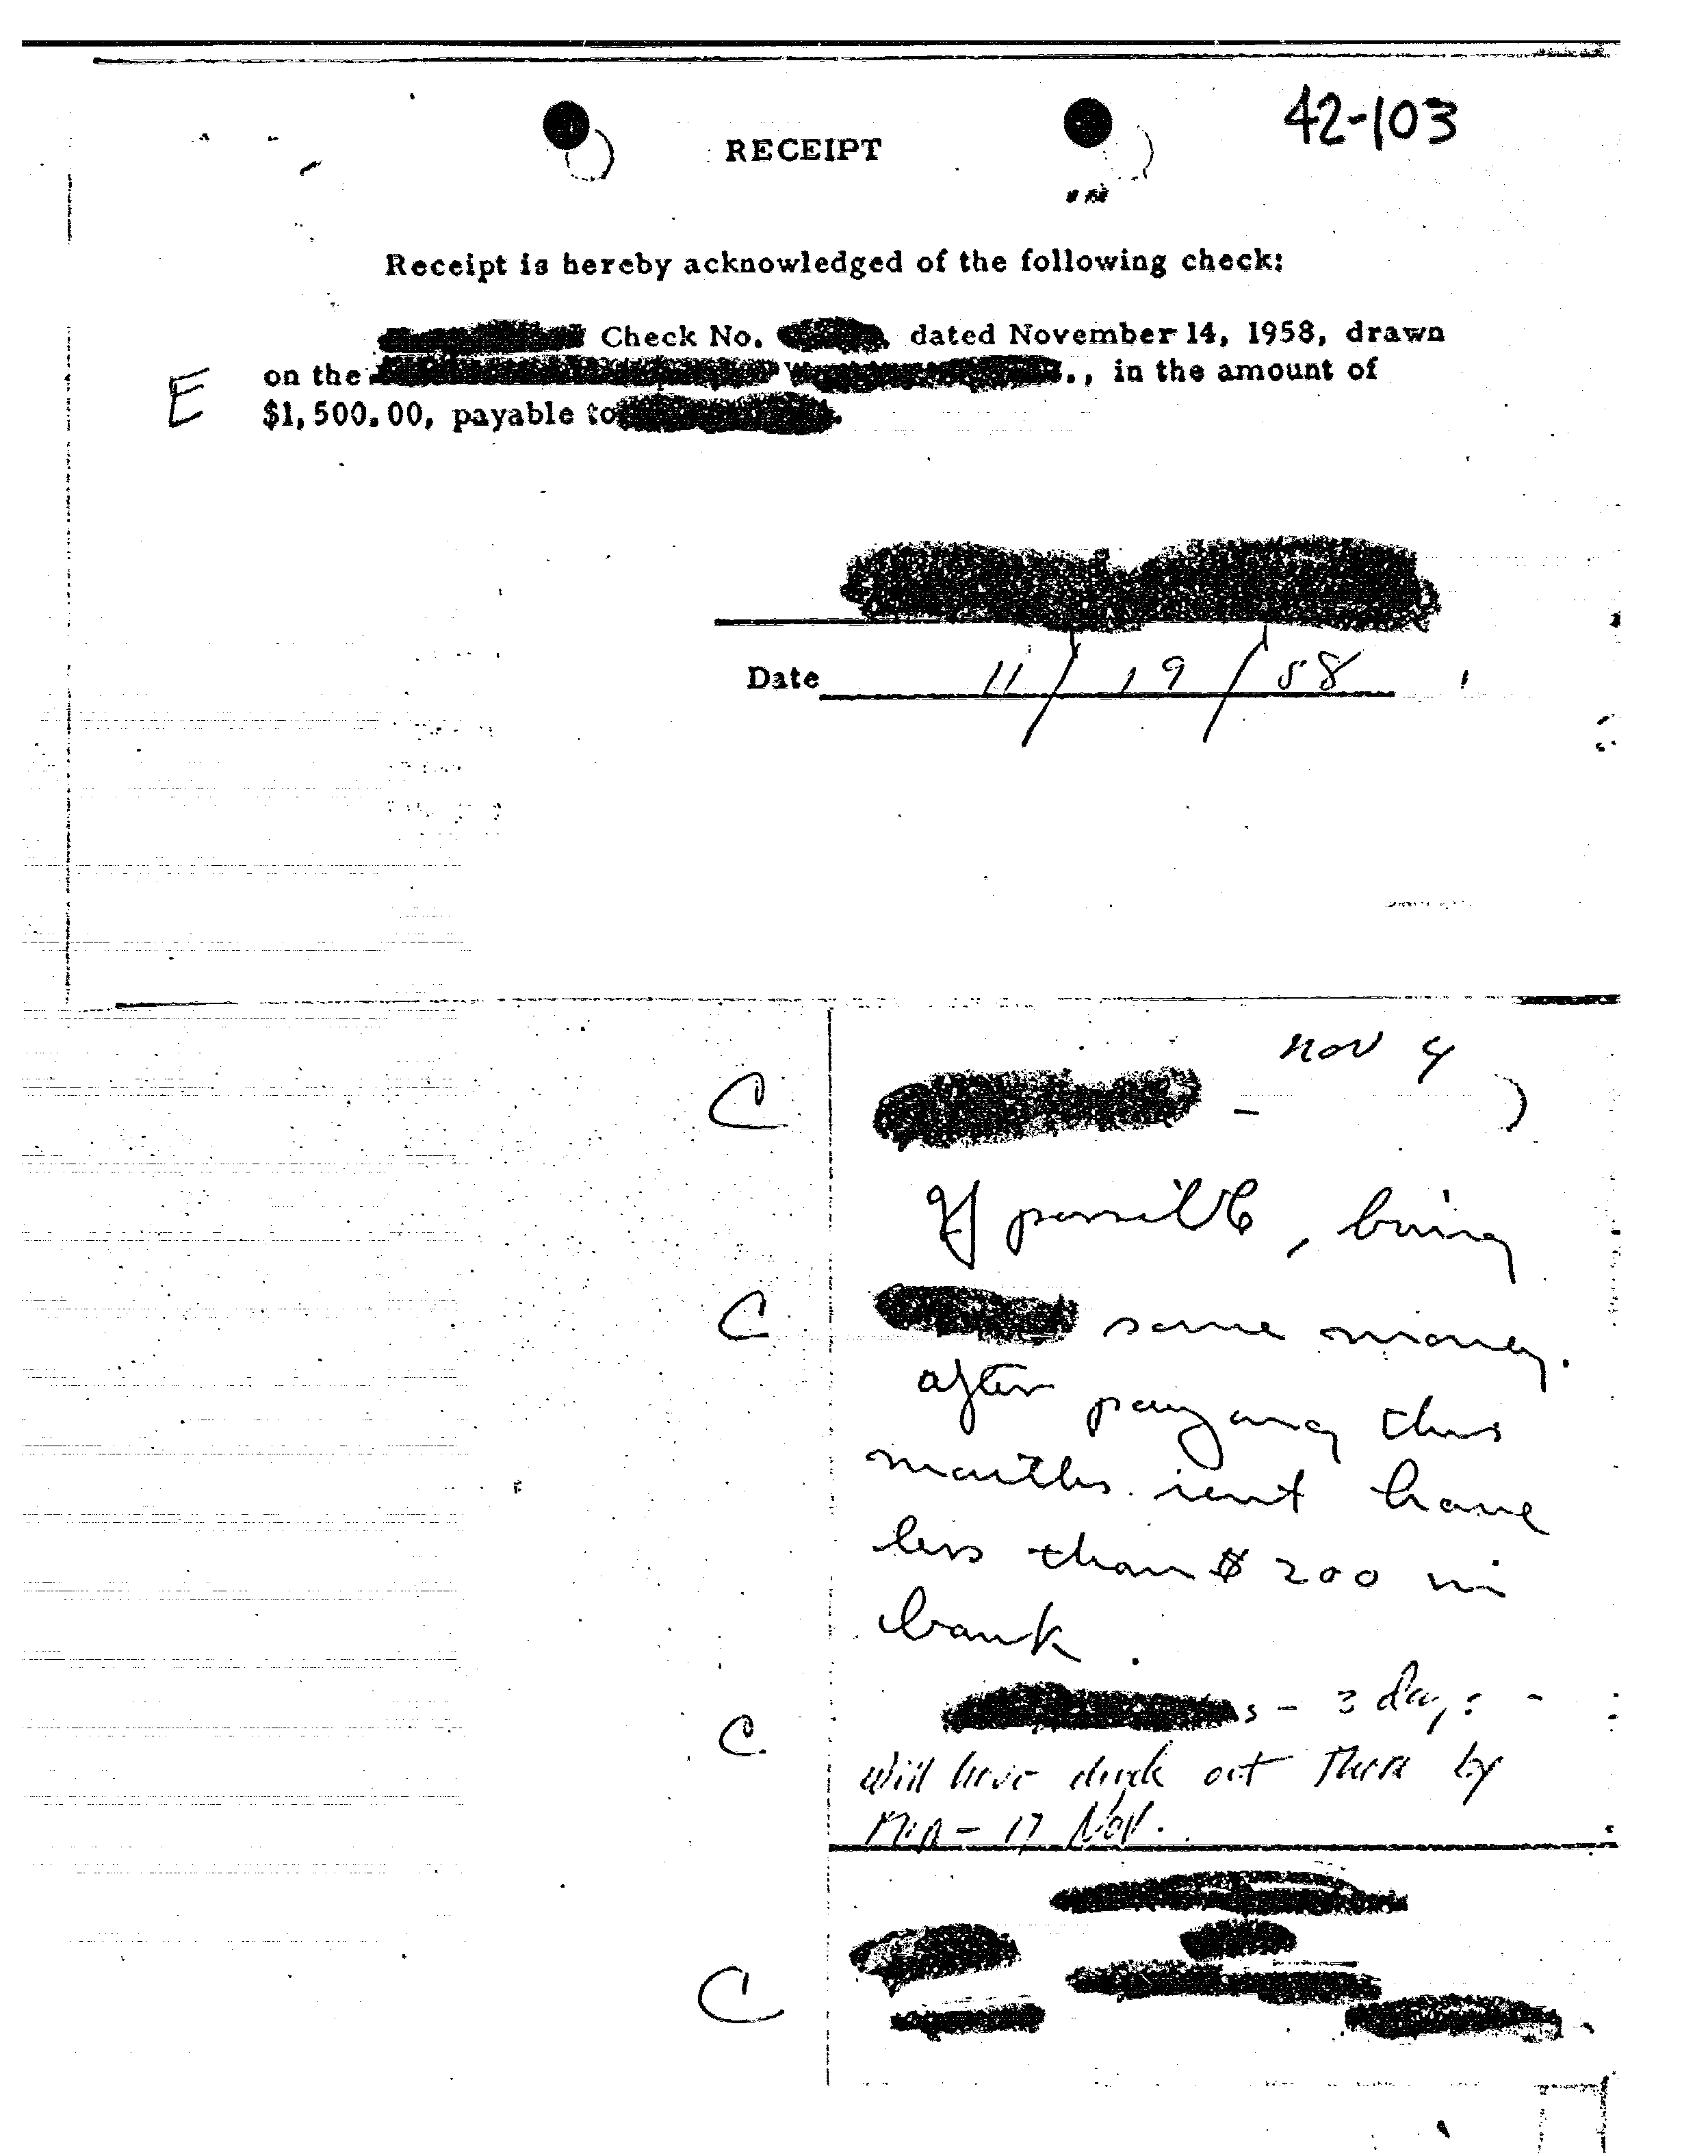 42-103
RECEIPT
Receipt is hereby acknowledged of the following check:
Check No. dated November 14, 1958, drawn
on the ., in the amount of
E
$1,500.00, payable to .
Date 11/19/58
nov 4
C -
If possible, bring
C some money.
after paying this
months rent have
less than $200 in
bank.
C. s - 3 days -
will have check out There by
17 Nov.
C